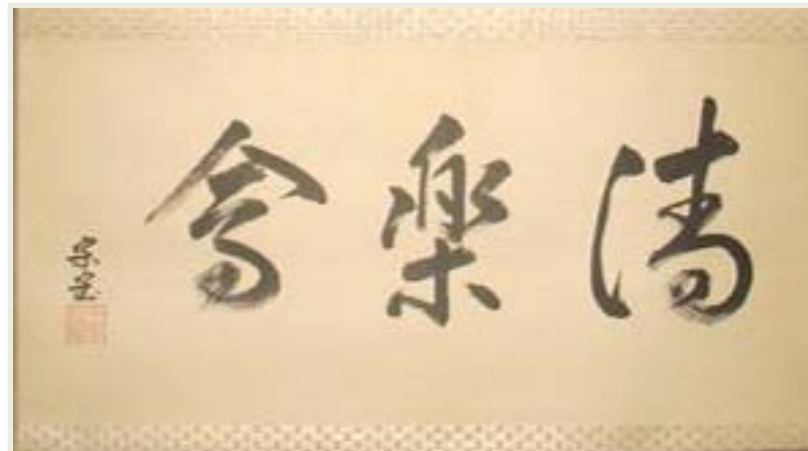 清樂會